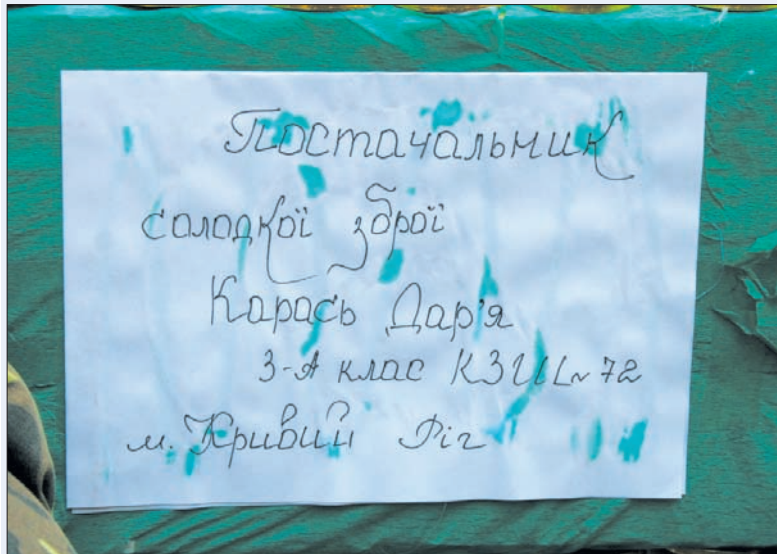 Постачальник
солодкої зброї
Карась Дар'я
3-А клас КЗШ № 72
м. Кривий Ріг